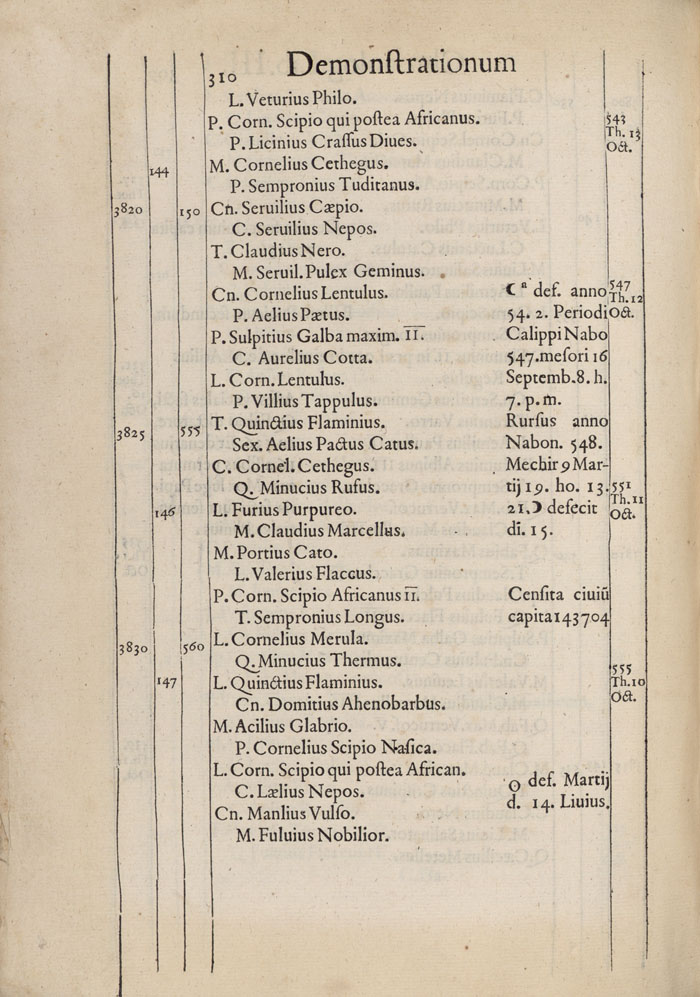 310 Demonſtrationum
L. Veturius Philo.
P. Corn. Scipio qui poſtea Africanus. 543
P. Licinius Craſſus Diues. Th. 13 Oct.
144 M. Cornelius Cethegus.
P. Sempronius Tuditanus.
3820 150 Cn. Seruilius Cæpio.
C. Seruilius Nepos.
T. Claudius Nero.
M. Seruil. Pulex Geminus.
Cn. Cornelius Lentulus. ☾ª def. anno 547 Th. 12
P. Aelius Pætus. 54. 2. Periodi Oct.
P. Sulpitius Galba maxim. II. Calippi Nabo
C. Aurelius Cotta. 547. meſori 16
L. Corn. Lentulus. Septemb. 8. h.
P. Villius Tappulus. 7. p. m.
T. Quinctius Flaminius. Rurſus anno
3825 555 Sex. Aelius Pactus Catus. Nabon. 548.
C. Cornel. Cethegus. Mechir 9 Mar-
Q. Minucius Rufus. tij 19. ho. 13. 551 Th. 11
146 L. Furius Purpureo. 21. ☽ defecit Oct.
M. Claudius Marcellus. di. 15.
M. Portius Cato.
L. Valerius Flaccus.
P. Corn. Scipio Africanus II. Cenſita ciuiū
T. Sempronius Longus. capita 143704
3830 560 L. Cornelius Merula.
Q. Minucius Thermus. 555
147 L. Quinctius Flaminius. Th. 10
Cn. Domitius Ahenobarbus. Oct.
M. Acilius Glabrio.
P. Cornelius Scipio Naſica.
L. Corn. Scipio qui poſtea African.
C. Lælius Nepos. def. Martij
Cn. Manlius Vulſo. d. 14. Liuius.
M. Fuluius Nobilior.